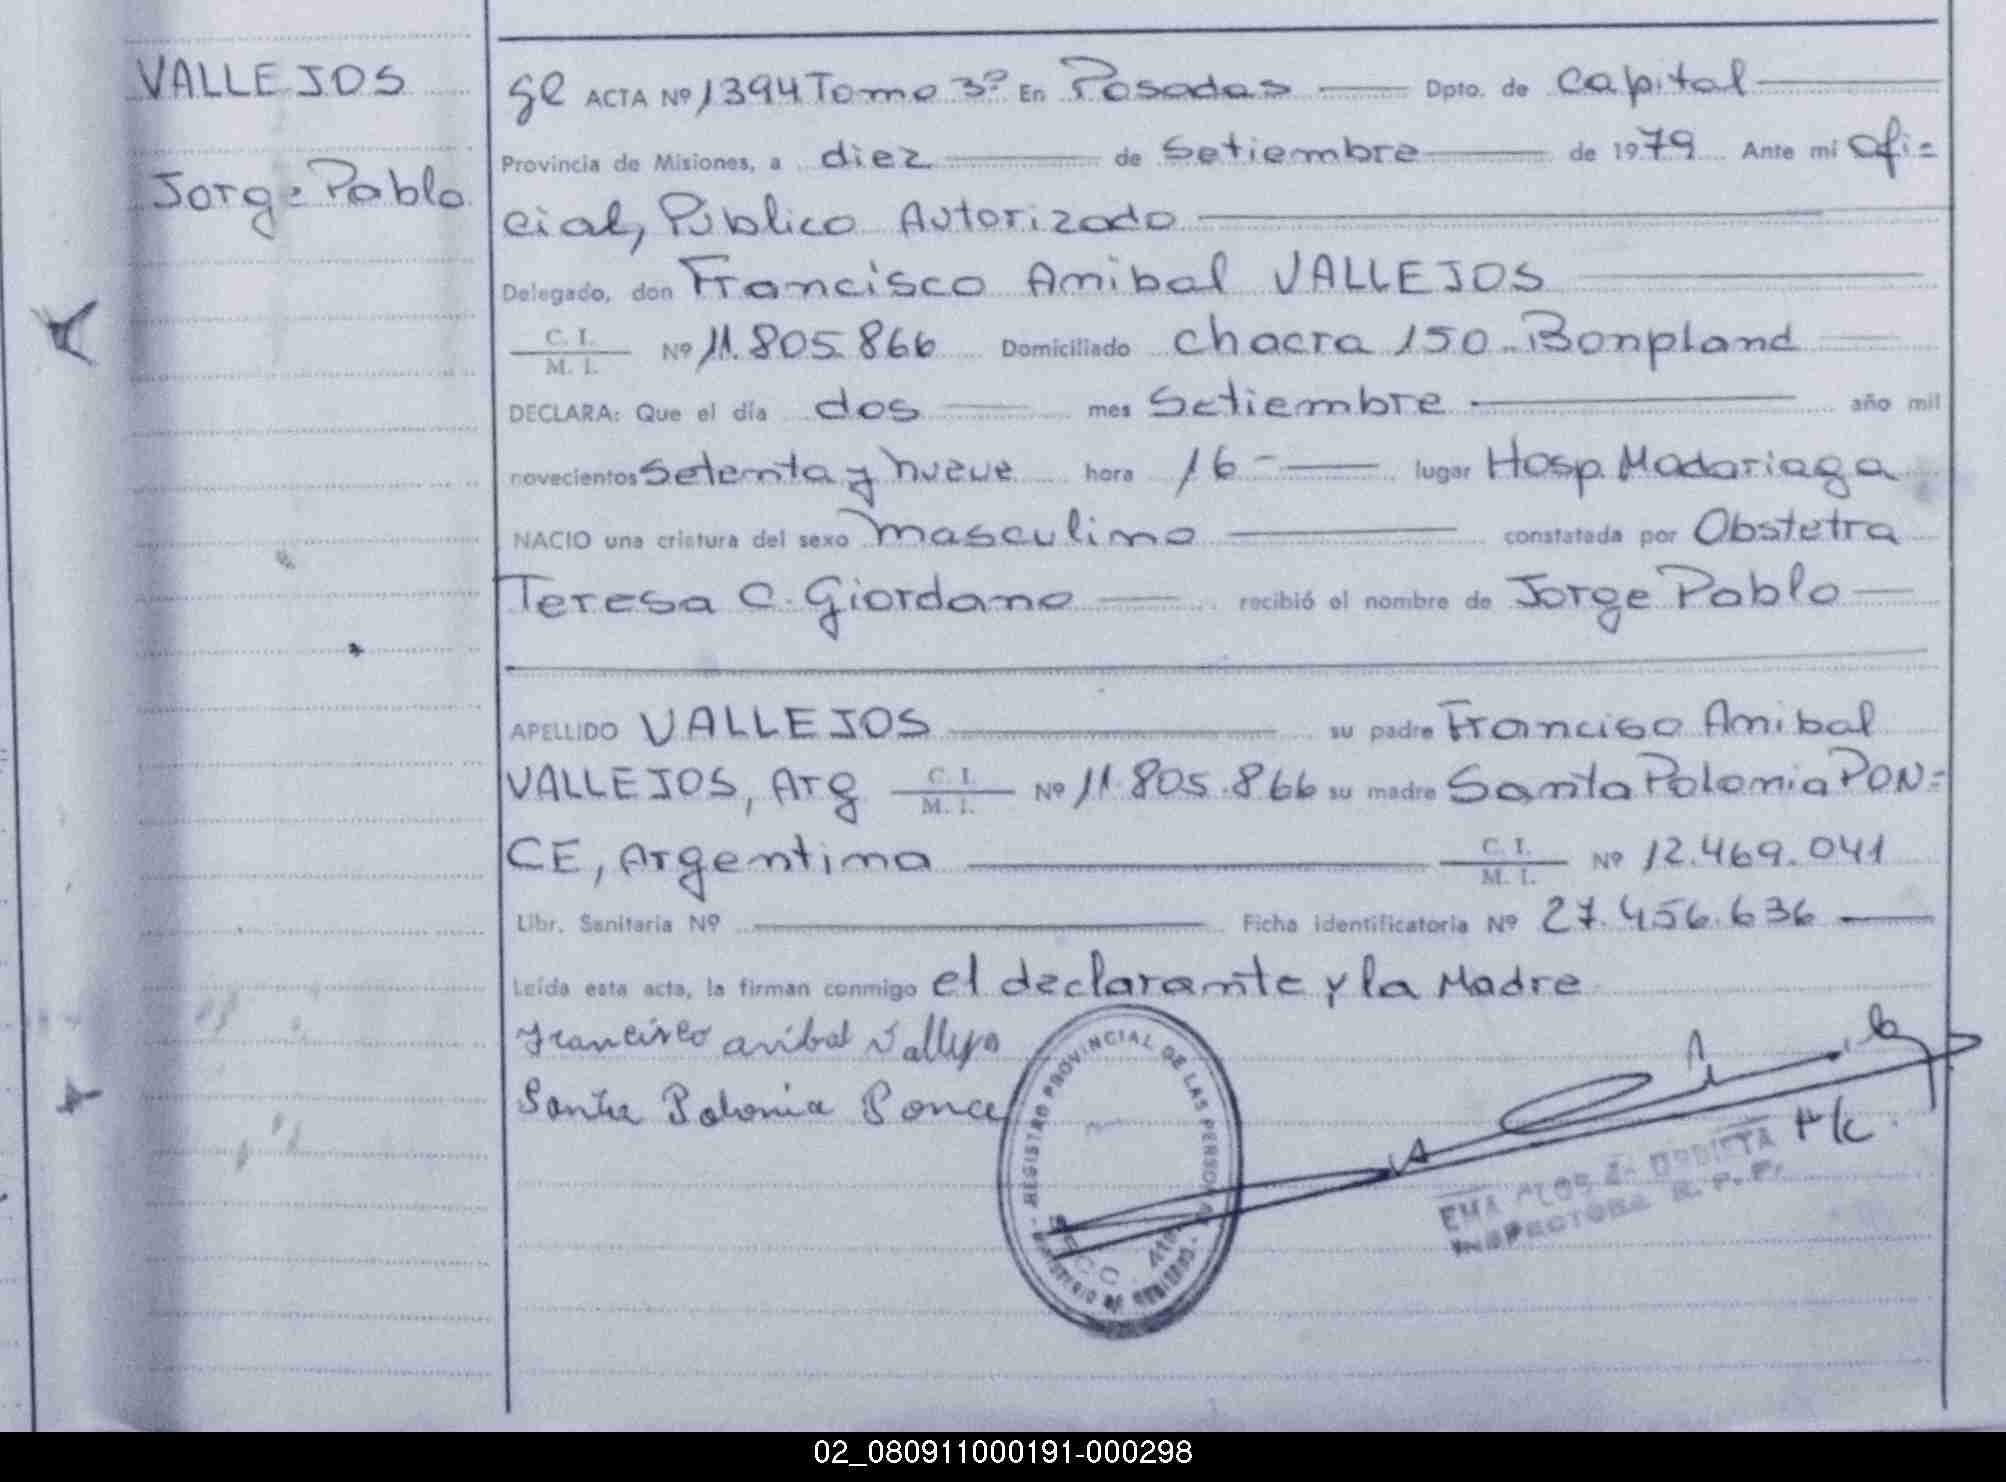 VALLEJOS
Jorge Pablo
ACTA Nº 1394 Tomo 3º En Posadas Dpto. de Capital
Provincia de Misiones, a diez de Setiembre de 1979 Ante mi ofi=
cial, Público Autorizado
Delegado, don Francisco Anibal VALLEJOS
C. I.
M. I. Nº 11.805.866 Domiciliado chacra 150. Bonpland
DECLARA: Que el día dos mes Setiembre año mil
novecientos Setenta y nueve hora 16 lugar Hosp. Madariaga
NACIO una criatura del sexo masculino constatada por Obstetra
Teresa C. Giordano recibió el nombre de Jorge Pablo
APELLIDO VALLEJOS su padre Franciso Anibal
VALLEJOS, Arg C. I. M. I. Nº 11.805.866 su madre Santa Polonia PON=
CE, Argentina C. I. M. I. Nº 12.469.041
Libr. Sanitaria Nº Ficha identificatoria Nº 27.456.636
Leída esta acta, la firman conmigo el declarante y la Madre
Francisco anibal Vallejo
Santa Polonia Ponce
REGISTRO PROVINCIAL DE LAS PERSONAS
MINISTERIO DE GOBIERNO
A/c.
INSPECTORA R. P. P.
02_080911000191-000298